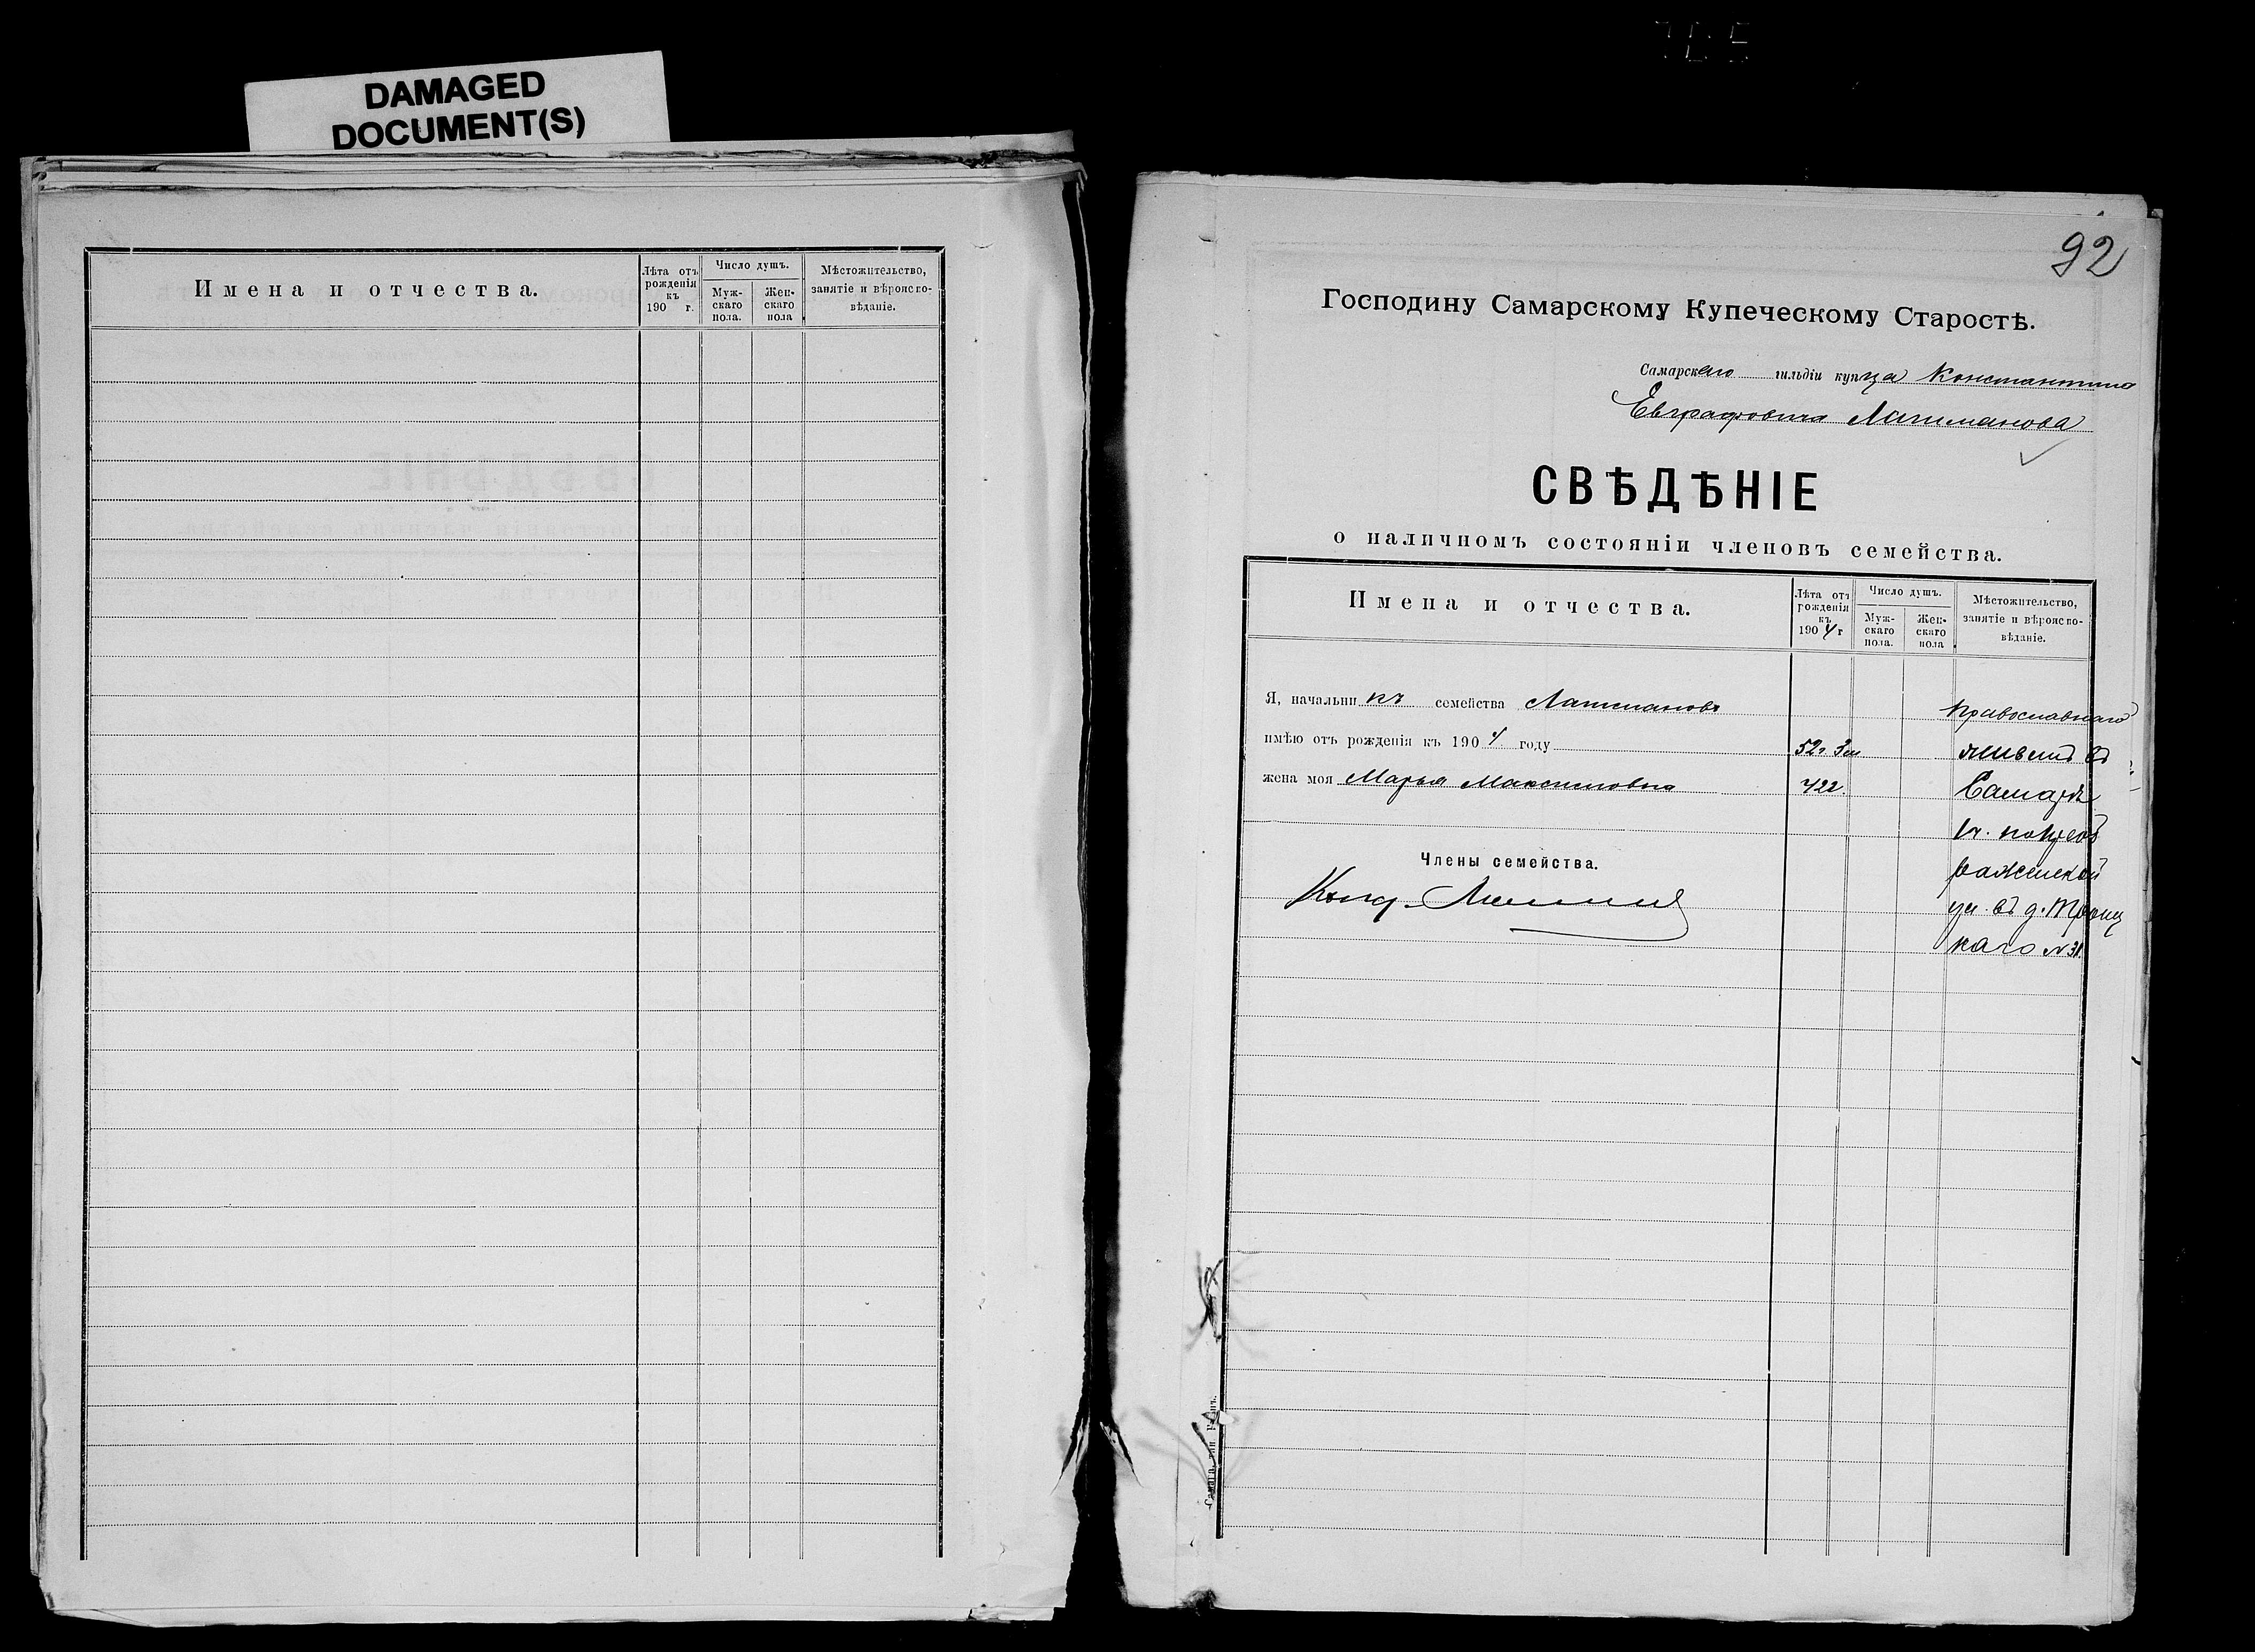 DAMAGED
DOCUMENT(S)
Имена и отчества.
Лѣта отъ рожденія къ 190 г.
Число душъ.
Муж-скаго пола.
Жен-скаго пола
Мѣстожительство, занятіе и вѣроиспо-вѣданіе.
92
Господину Самарскому Купеческому Старостѣ.
Самарскаго гильдіи купца Константина
Евграфовича Латманова
СВѢДѢНІЕ
о наличномъ состояніи членовъ семейства.
Имена и отчества.
Лѣта отъ рожденія къ 1904 г
Число душъ.
Муж-скаго пола.
Жен-скаго пола
Мѣстожительство, занятіе и вѣроиспо-вѣданіе.
Я, начальникъ семейства Латмановъ
православнаго
имѣю отъ рожденія къ 1904 году 52г 3м
живетъ въ
жена моя Марья Максимовна 42г.
Самарѣ
Члены семейства.
ул. въ д. Троиц
каго №31.